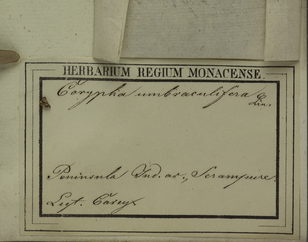 HERBARIUM REGIUM MONACENSE.
Corypha umbraculifera
Lin.
Peninsula Ind. or., Serampure.
Legt. Carey